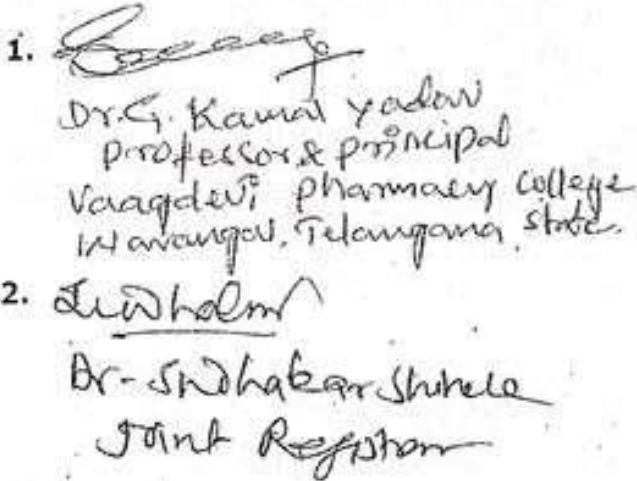 1.
Dr. G. Kamal Yadav
Professor & Principal
Vaagdevi Pharmacy College
Warangal, Telangana State.
2.
Dr - Sudhakar
Joint Registrar